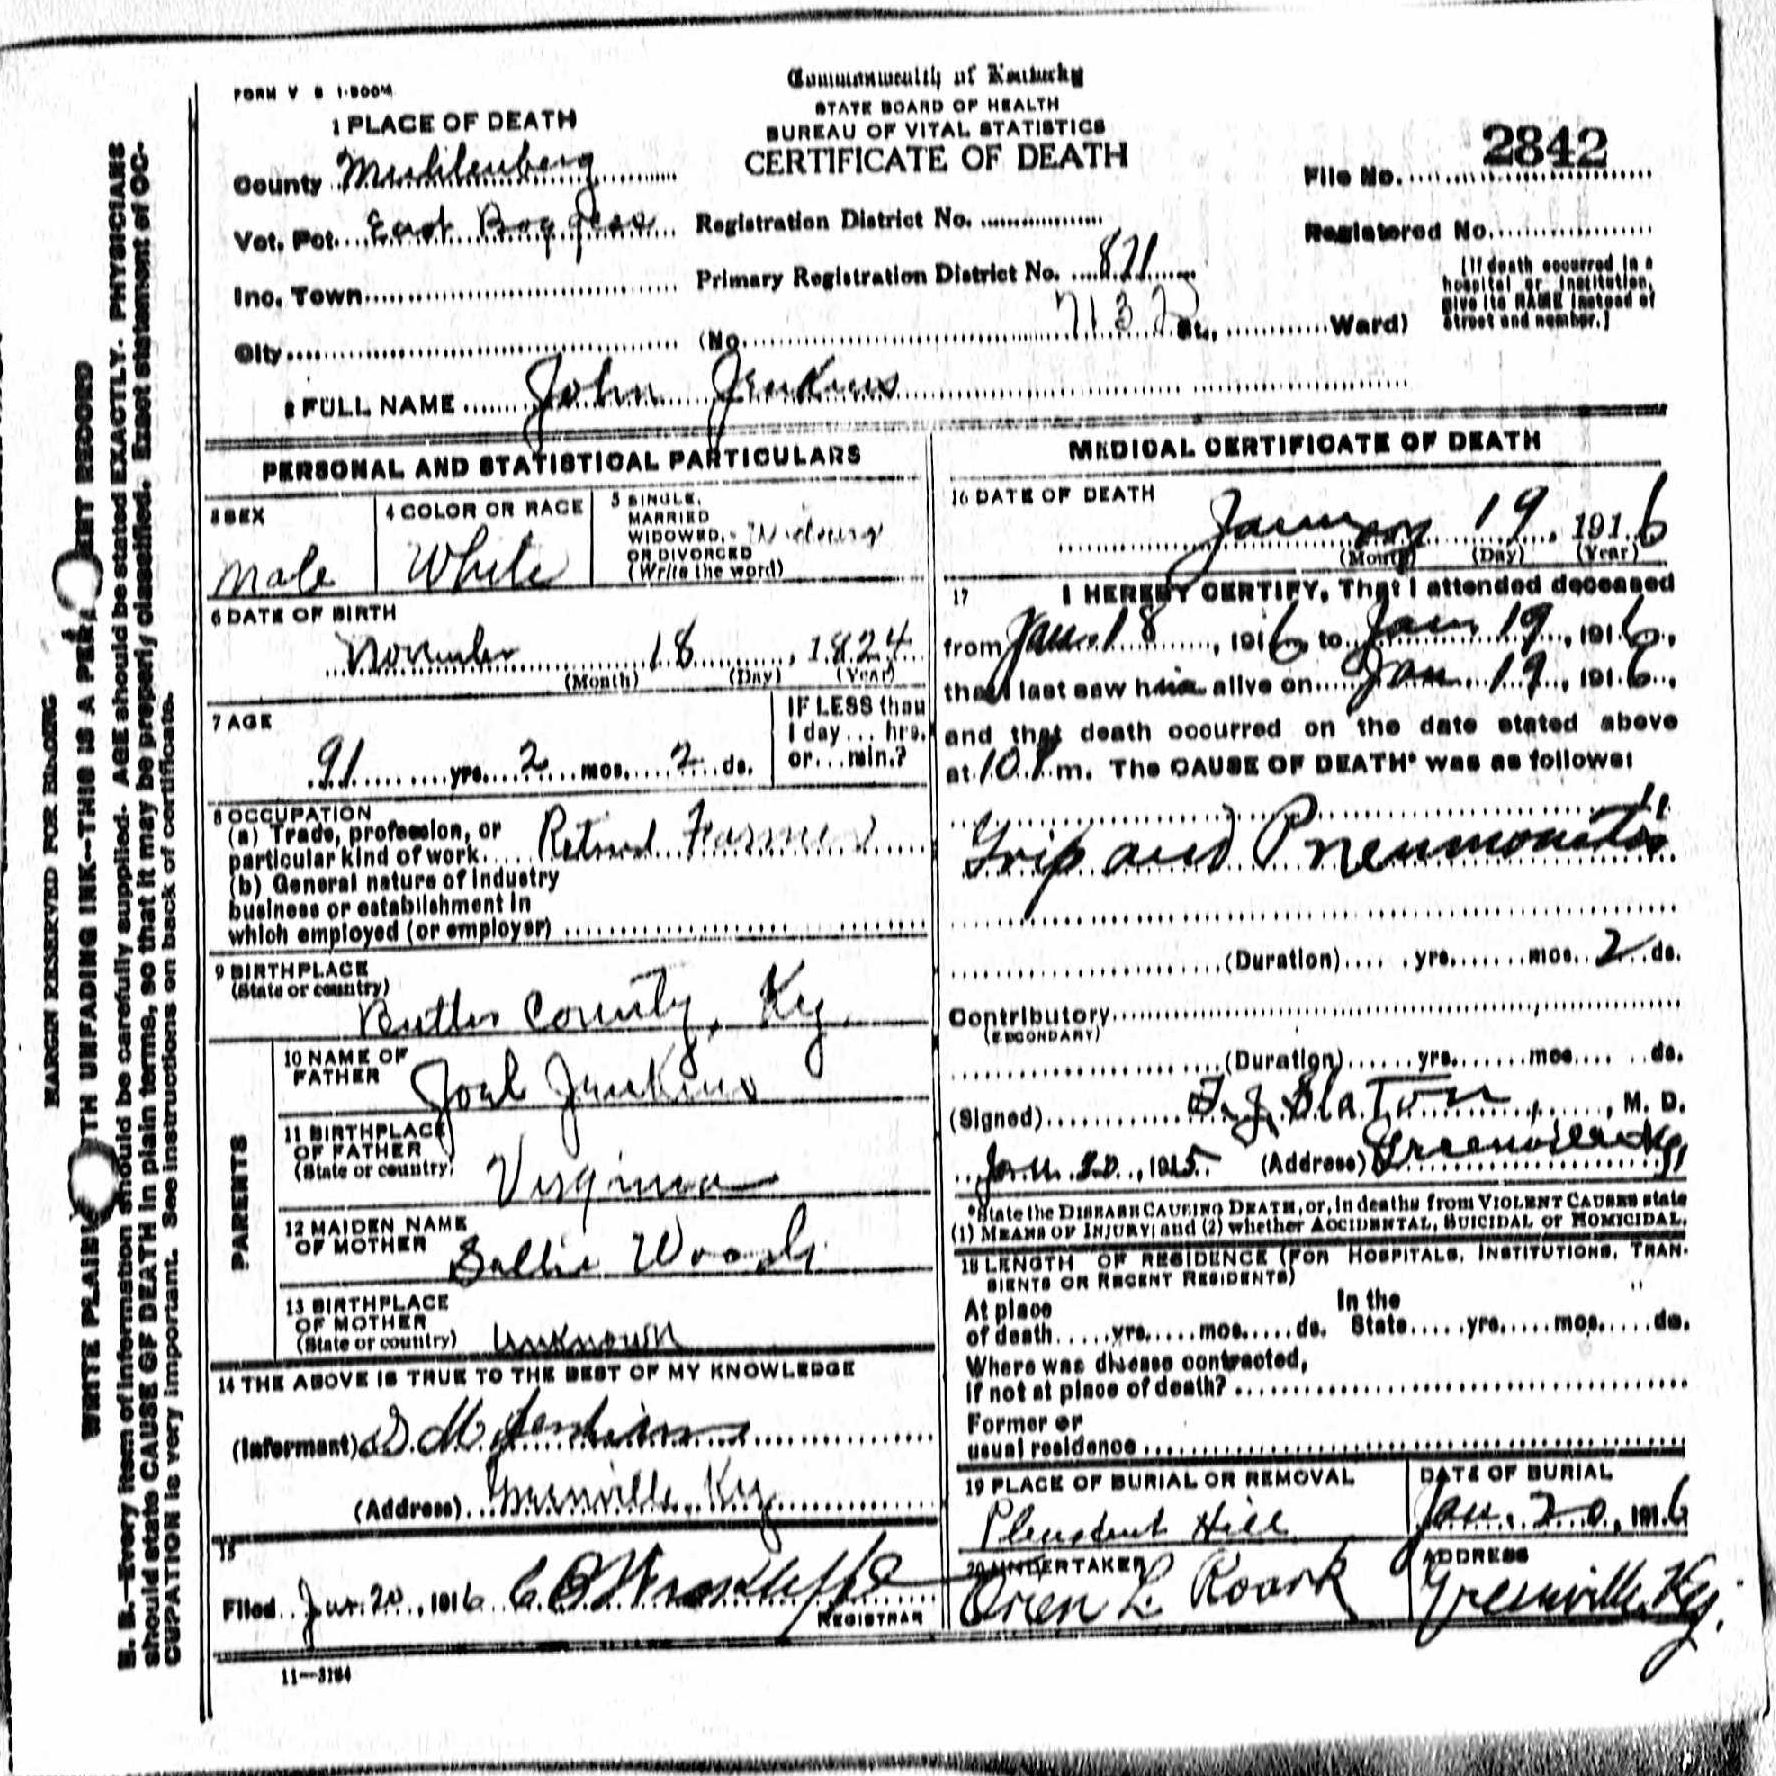 FORM V S 1-500M
Commonwealth of Kentucky
STATE BOARD OF HEALTH
BUREAU OF VITAL STATISTICS
CERTIFICATE OF DEATH
2842
File No.
Registered No.
[If death occurred in a
hospital or institution,
give its NAME instead of
street and number.]
1 PLACE OF DEATH
County Muhlenberg
Vot. Pct. East Boggess
Registration District No.
Inc. Town
Primary Registration District No. 871
7137
City
(No. St., Ward)
2 FULL NAME John Jenkins
PERSONAL AND STATISTICAL PARTICULARS
3 SEX
Male
4 COLOR OR RACE
White
5 SINGLE,
MARRIED
WIDOWED,
OR DIVORCED
(Write the word)
6 DATE OF BIRTH
November 18, 1824
(Month) (Day) (Year)
7 AGE
91 yrs. 2 mos. 2 ds.
IF LESS than
1 day... hrs.
or... min.?
8 OCCUPATION
(a) Trade, profession, or
particular kind of work Retired Farmer
(b) General nature of industry
business or establishment in
which employed (or employer)
9 BIRTHPLACE
(State or country)
Butler County, Ky.
PARENTS
10 NAME OF
FATHER Joel Jenkins
11 BIRTHPLACE
OF FATHER
(State or country) Virginia
12 MAIDEN NAME
OF MOTHER Sallie Woods
13 BIRTHPLACE
OF MOTHER
(State or country) Unknown
14 THE ABOVE IS TRUE TO THE BEST OF MY KNOWLEDGE
(Informant) D. M. Jenkins
(Address) Greenville, Ky
15
Filed Jan. 20, 1916 REGISTRAR
11—3184
MEDICAL CERTIFICATE OF DEATH
16 DATE OF DEATH
January 19, 1916
(Month) (Day) (Year)
17 I HEREBY CERTIFY, That I attended deceased
from Jan. 18, 1916, to Jan 19, 1916,
that I last saw him alive on Jan 19, 1916,
and that death occurred on the date stated above
at 10 P m. The CAUSE OF DEATH* was as follows:
Grip and Pneumonitis
(Duration) yrs. mos. 2 ds.
Contributory
(SECONDARY)
(Duration) yrs. mos. ds.
(Signed) T. J. Slaton, M. D.
Jan. 20, 1915. (Address) Greenville Ky
*State the DISEASE CAUSING DEATH, or, in deaths from VIOLENT CAUSES state
(1) MEANS OF INJURY; and (2) whether ACCIDENTAL, SUICIDAL or HOMICIDAL.
18 LENGTH OF RESIDENCE (FOR HOSPITALS, INSTITUTIONS, TRAN-
SIENTS OR RECENT RESIDENTS)
At place In the
of death yrs. mos. ds. State yrs. mos. ds.
Where was disease contracted,
if not at place of death?
Former or
usual residence
19 PLACE OF BURIAL OR REMOVAL
Pleasant Hill
DATE OF BURIAL
Jan. 20, 1916
20 UNDERTAKER
Oren L. Roark
ADDRESS
Greenville, Ky.
MARGIN RESERVED FOR BINDING
WRITE PLAINLY WITH UNFADING INK--THIS IS A PERMANENT RECORD
N. B.—Every item of information should be carefully supplied. AGE should be stated EXACTLY. PHYSICIANS
should state CAUSE OF DEATH in plain terms, so that it may be properly classified. Exact statement of OC-
CUPATION is very important. See instructions on back of certificate.